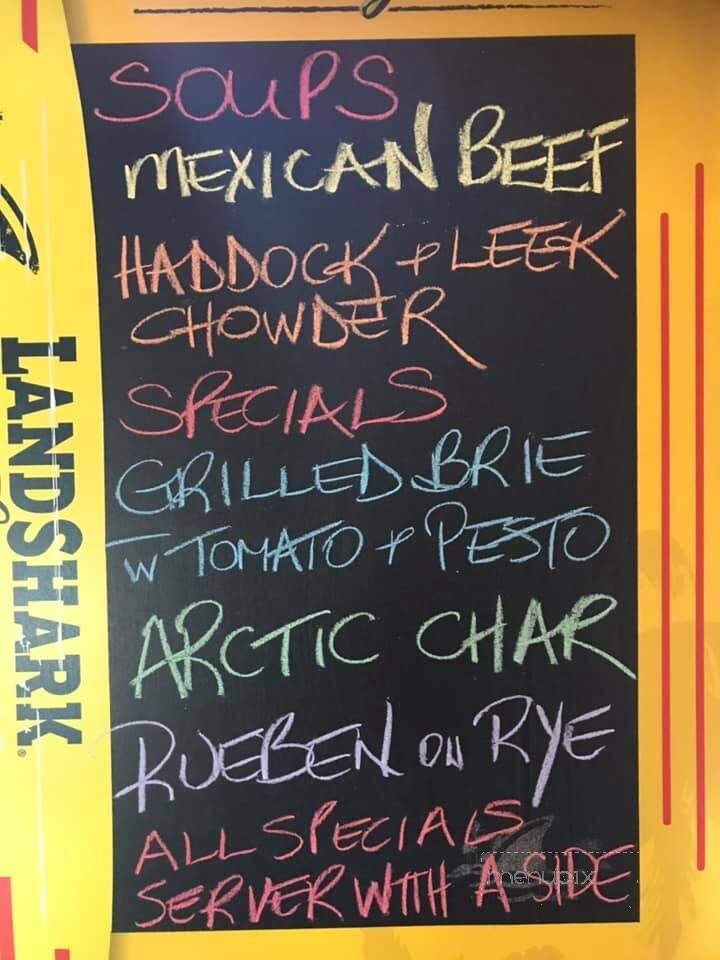 SOUPS
MEXICAN BEEF
HADDOCK + LEEK
CHOWDER
SPECIALS
GRILLED BRIE
W TOMATO + PESTO
ARCTIC CHAR
RUEBEN ON RYE
ALL SPECIALS
SERVER WITH A SIDE
menupix
LANDSHARK®